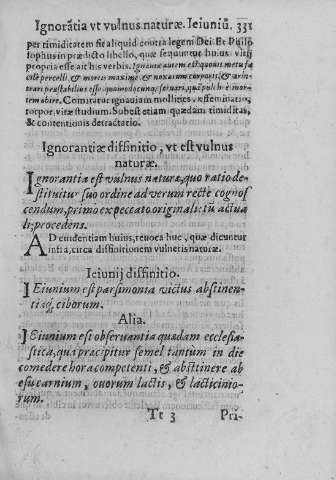 Ignorãtia vt vulnus naturæ. Ieiuniũ. 331
per timiditatem fit aliquid contra legem Dei. Et Philo
sophus in prædicto libello, quæ sequuntur huius vitij
propria esse ait his verbis. Ignauiæ autem est quouis metu fa
cilè percelli, & mortis maximè, & noxarum corporis, & arbi-
trari præstabilius esse, quomodocunque seruari, quàm pulchrè mor-
tem obire. Comitatur ignauiam mollities, effeminatio,
torpor, vitæ studium. Subest etiam quædam timiditas,
& contentionis detractatio.
Ignorantiæ diffinitio, vt est vulnus
naturæ.
Ignorantia est vulnus naturæ, quo ratio de-
stituitur suo ordine ad verum rectè cognos
cendum, primo ex peccato originali: tũ actua
li procedens.
AD euidentiam huius, reuoca huc, quæ dicuntur
infrà, circa diffinitionem vulneris naturæ.
Ieiunij diffinitio.
IEiunium est parsimonia victus abstinen-
tiaq; ciborum.
Alia.
IEiunium est obseruantia quædam ecclesia-
stica, qua præcipitur semel tantum in die
comedere hora competenti, & abstinere ab
esu carnium, ouorum lactis, & lacticinio-
rum.
Tt 3 Pri-